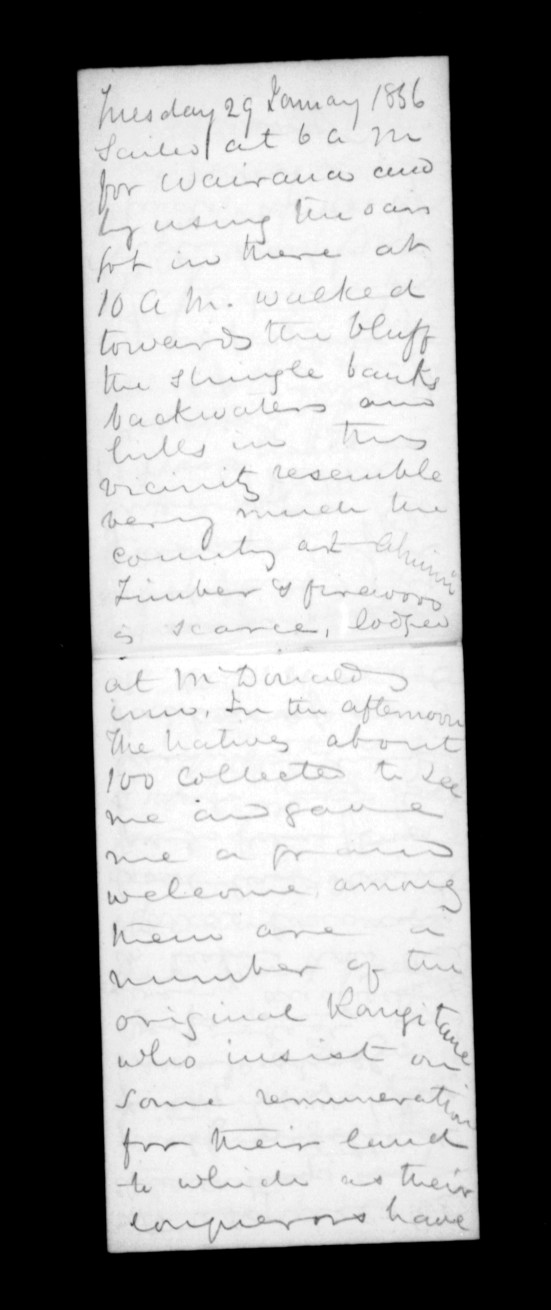 Tuesday 29 January 1856
Sailed at 6 a m
for Wairau and
by using the oars
got in there at
10 a m. walked
towards the bluff
the shingle banks
backwaters and
hills in this
vicinity resemble
very much the
country at Ahuriri
Timber & firewood
is scarce, lodged
at McDonalds
inn. In the afternoon
the natives about
100 collected to see
me and gave
me a grand
welcome, among
them are a
number of the
original Rangitane
who insist on
some remuneration
for their land
to which as their
conquerors have